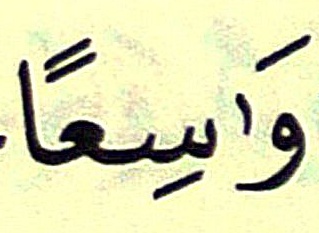 وَٰسِعًا